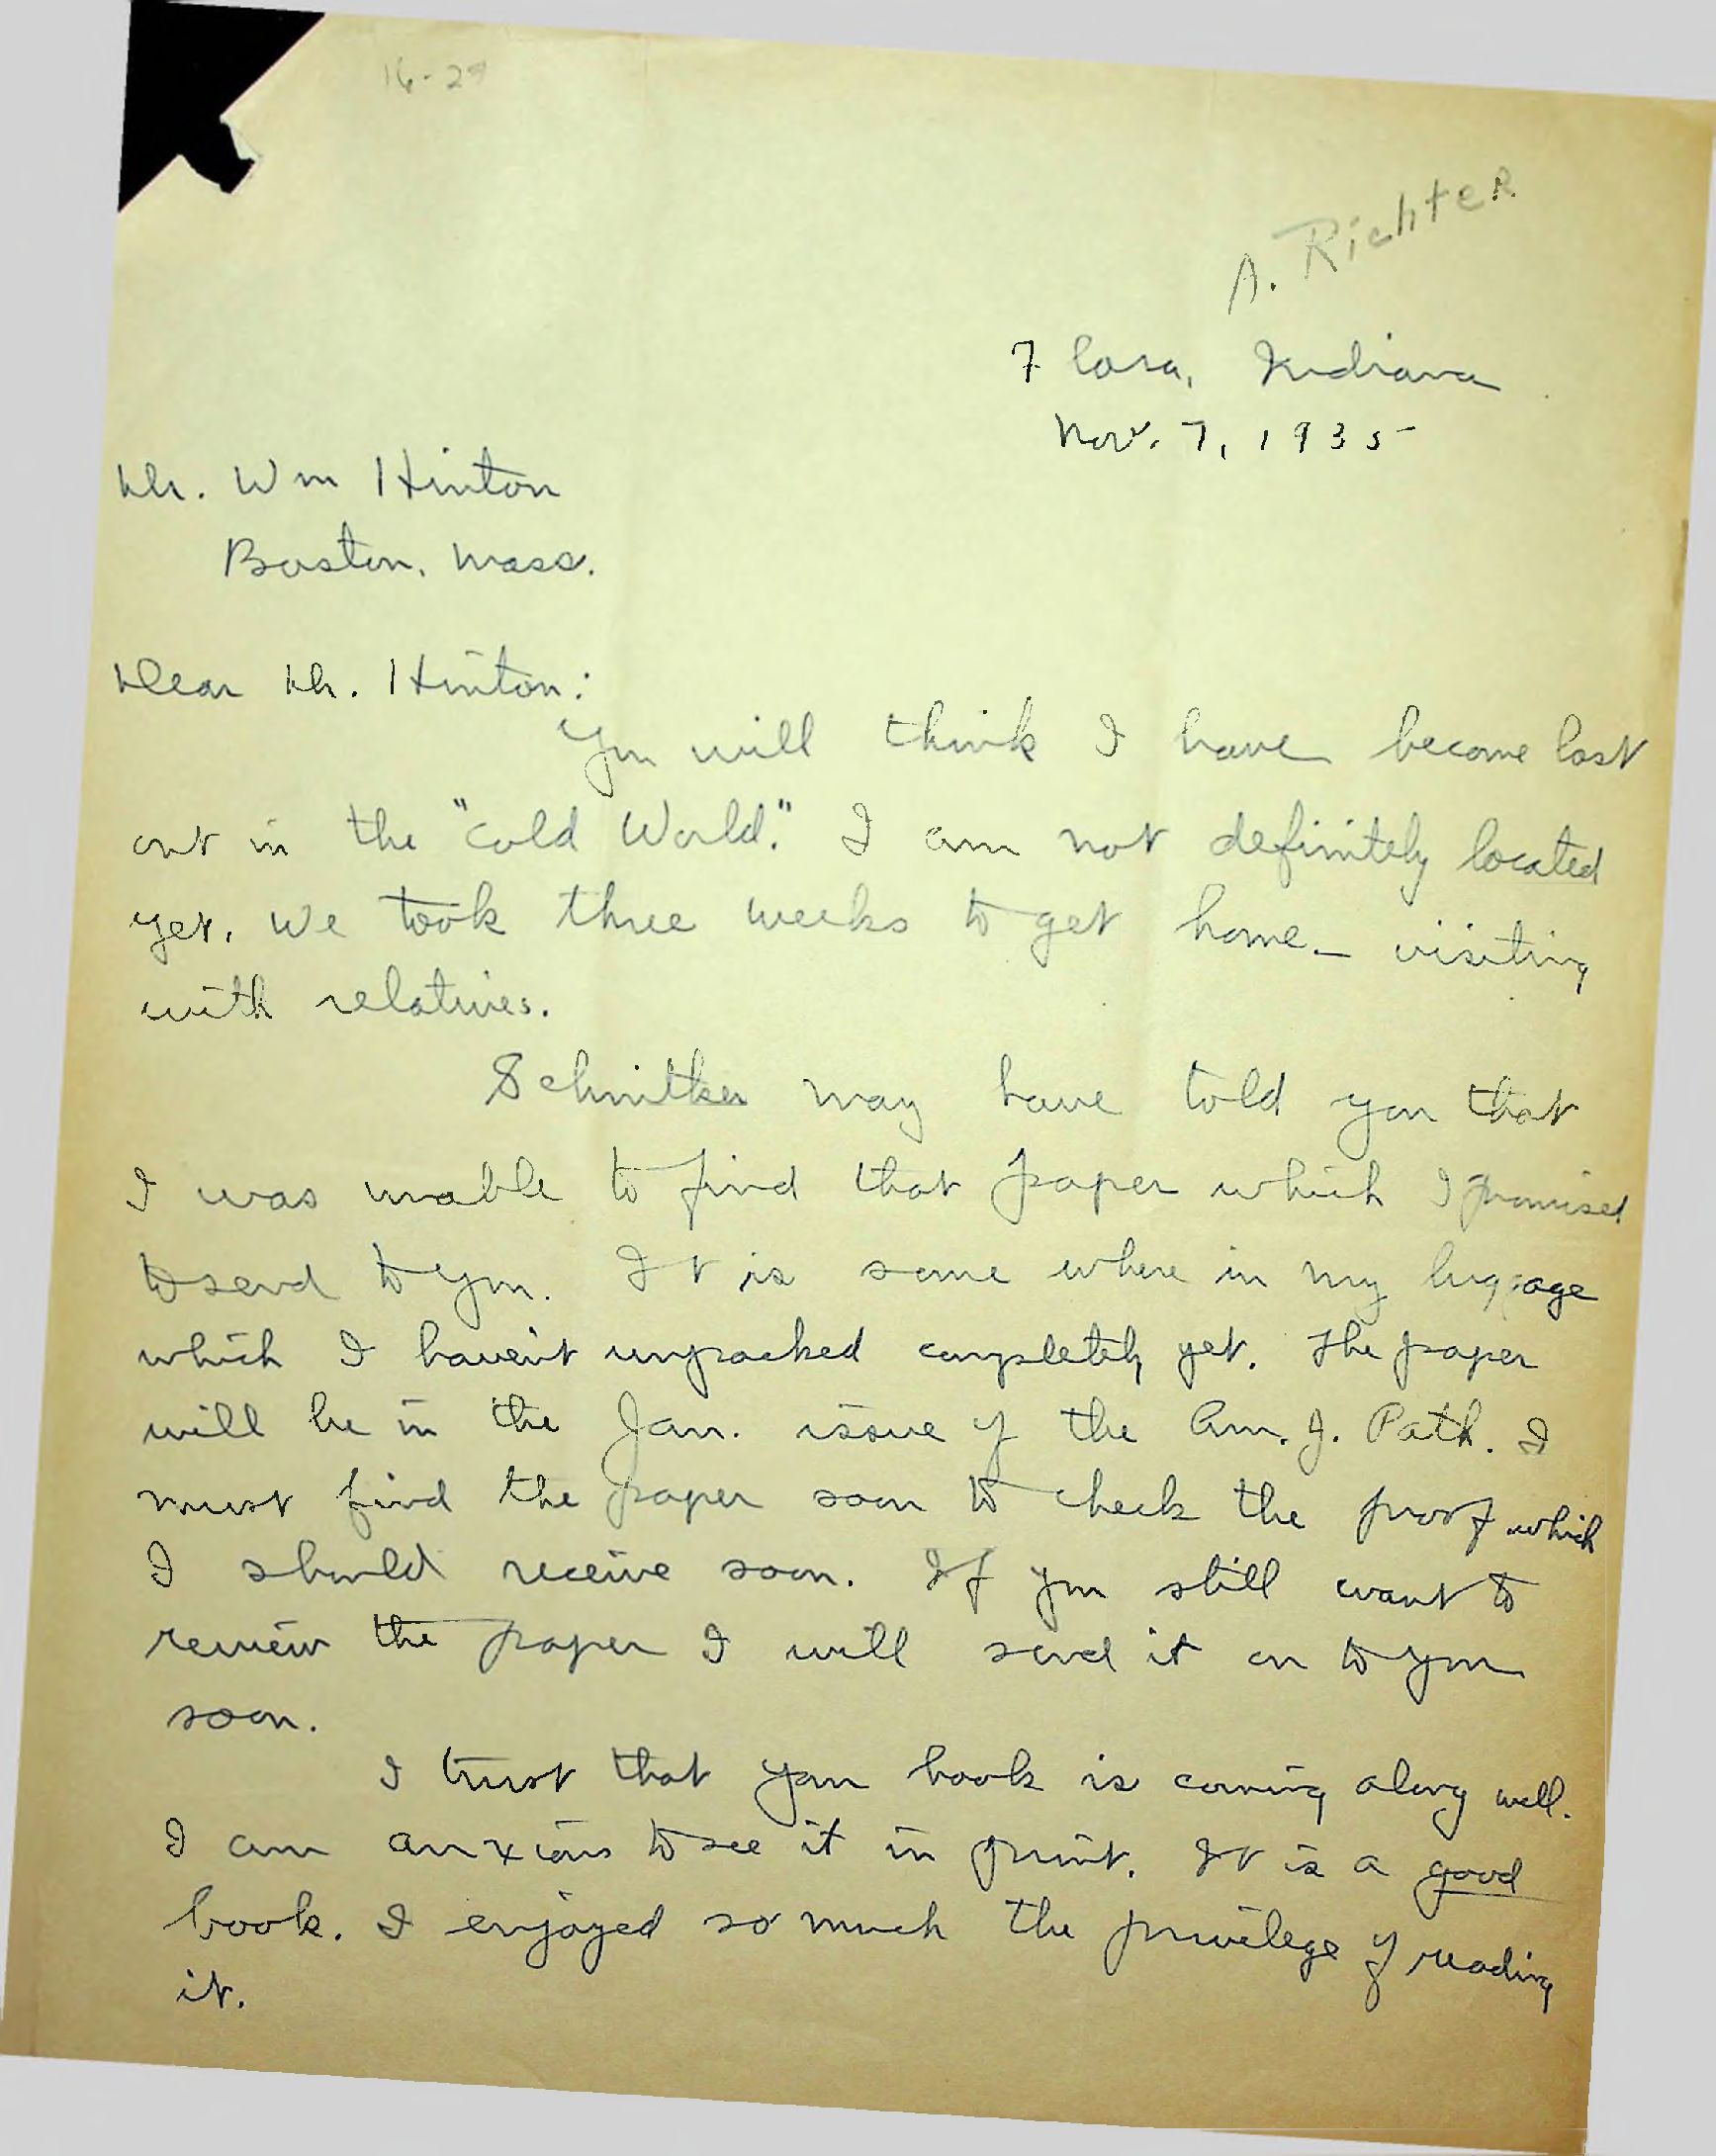 16-29
A. Richter
Flora, Indiana
Nov. 7, 1935
Dr. Wm Hinton
Boston, Mass.
Dear Dr. Hinton:
You will think I have become lost
out in the "cold World." I am not definitely located
yet. We took three weeks to get home - visiting
with relatives.
Schnitker may have told you that
I was unable to find that paper which I promised
to send to you. It is some where in my luggage
which I haven't unpacked completely yet. The paper
will be in the Jan. issue of the Am. J. Path. I
must find the paper soon to check the proof which
I should receive soon. If you still want to
review the paper I will send it on to you
soon.
I trust that your book is coming along well.
I am anxious to see it in print. It is a good
book. I enjoyed so much the privilege of reading
it.